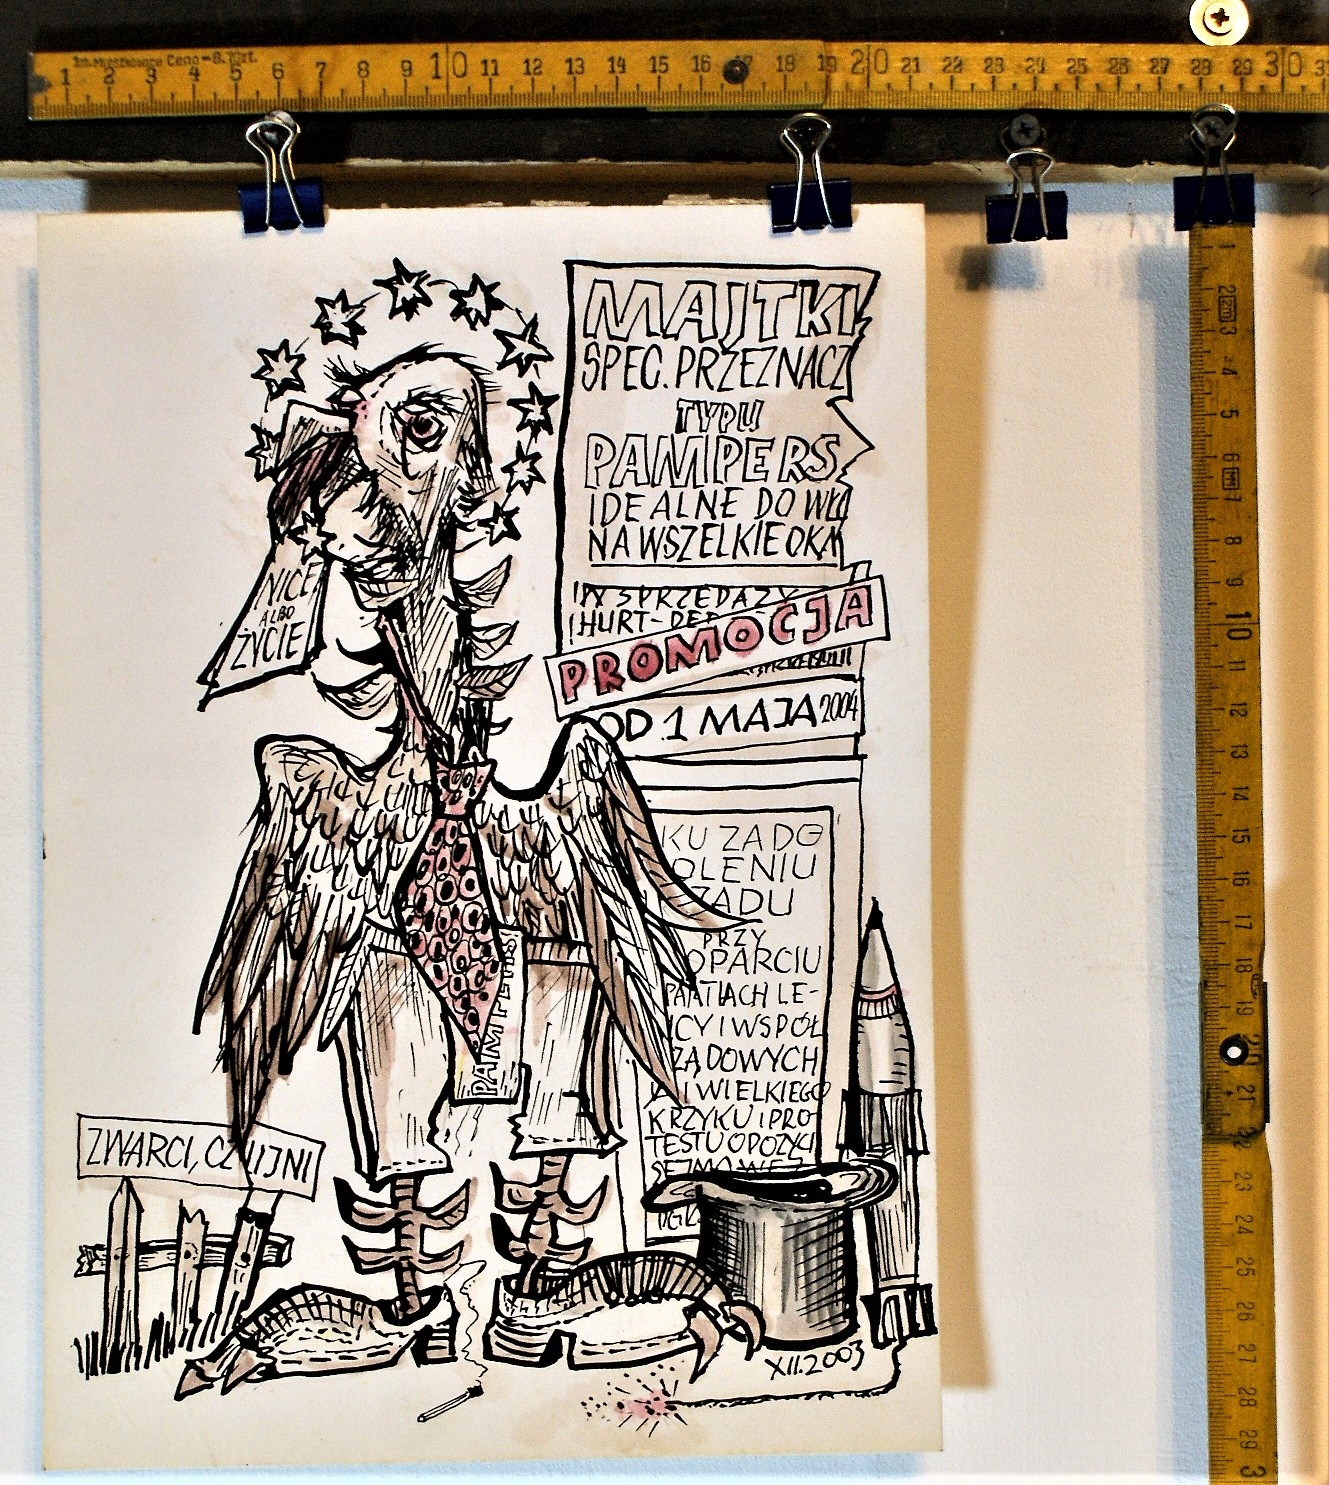 Cena - 8.70zł.
1 2 3 4 5 6 7 8 9 10 11 12 13 14 15 16 17 18 19 20 21 22 23 24 25 26 27 28 29 30 31
MAJTKI
SPEC. PRZEZNACZ
TYPU
PAMPERS
IDEALNE DO WŁ
NA WSZELKIE OK
W SPRZEDAŻY
HURT-DE
PROMOCJA
OD 1 MAJA 2004
NICE
ALBO
ŻYCIE
KU ZADO
OLENIU
ZĄDU
PRZY
OPARCIU
LE-
ICY I WSPÓŁ
ZĄDOWYCH
I WIELKIEGO
KRZYKU I PRO-
TESTU OPOZYCJI
SEJMOWEJ
PAMPERS
ZWARCI, CZUJNI
XII.2003
1 2 3 4 5 6 7 8 9 10 11 12 13 14 15 16 17 18 19 20 21 22 23 24 25 26 27 28 29 3